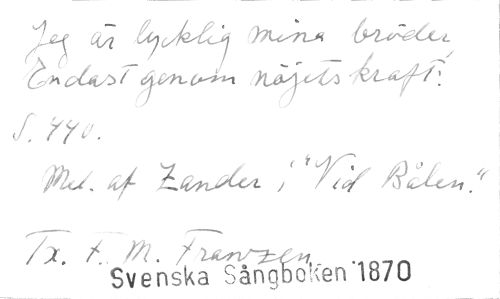 Jeg är lycklig mina bröder,
Endast genom nöjets kraft:
S. 440.
Mel. af Zander, i "Vid Bålen."
Tx. F. M. Franzen
Svenska Sångboken 1870